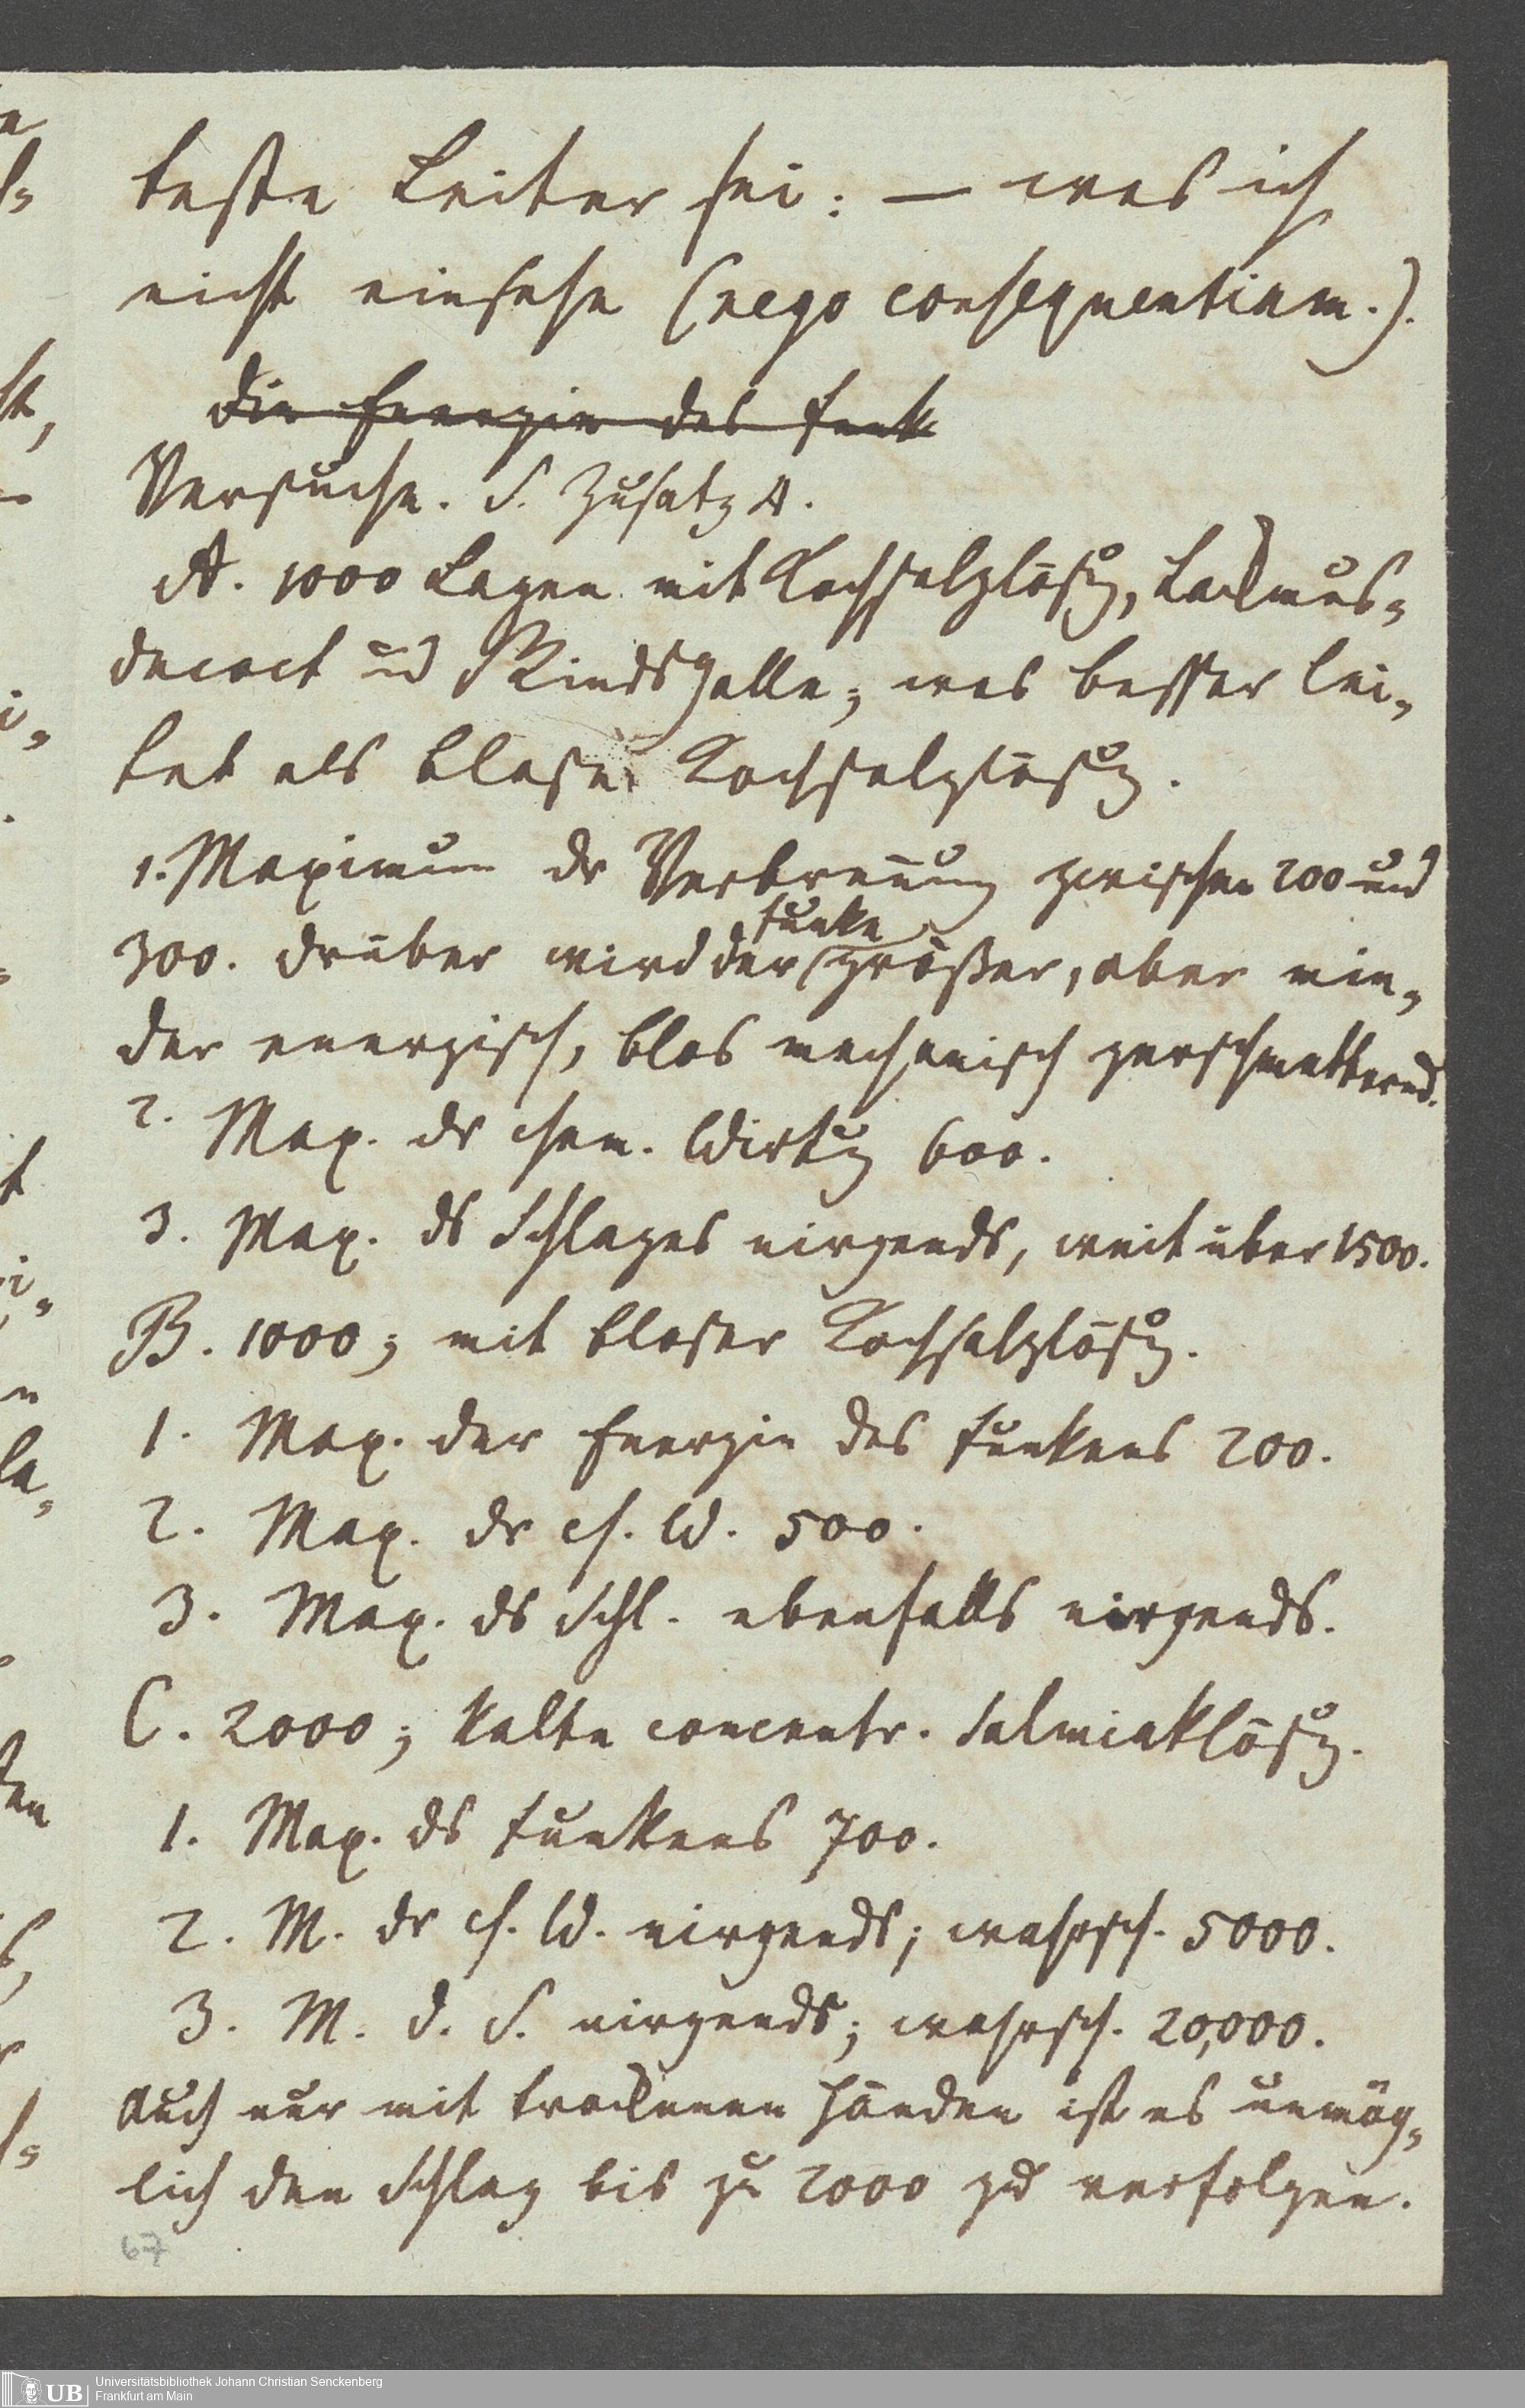 beste Leiter sei: — was ich
nicht einsehe (nego consequentiam.).
Die Energie des Funk
Versuche. S. Zusatz A.
A. 1000 Lagen mit Kochsalzlösg, Lackmus=
decoct ud Rindsgalle; was besser lei=
tet als blose Kochsalzlösg.
1. Maximum dr Verbreñung zwischen 200 und
300. drüber wird der Funke größer, aber min=
der energisch, blos mechanisch zerschmetternd.
2. Max. dr chem. Wirkg 600.
3. Max. ds Schlages nirgends, weit über 1500.
B. 1000; mit bloser Kochsalzlösg.
1. Max. der Energie des Funkens 200.
2. Max. dr ch. W. 500.
3. Max. ds Schl. ebenfalls nirgends.
C. 2000; kalte concentr. Salmiaklösg.
1. Max. ds Funkens 700.
2. M. dr ch. W. nirgends; wahrsch. 5000.
3. M. d. S. nirgends; wahrsch. 20,000.
Auch nur mit trockenen Händen ist es unmög=
lich den Schlag bis zu 2000 zu verfolgen.
67
UB Universitätsbibliothek Johann Christian Senckenberg
Frankfurt am Main